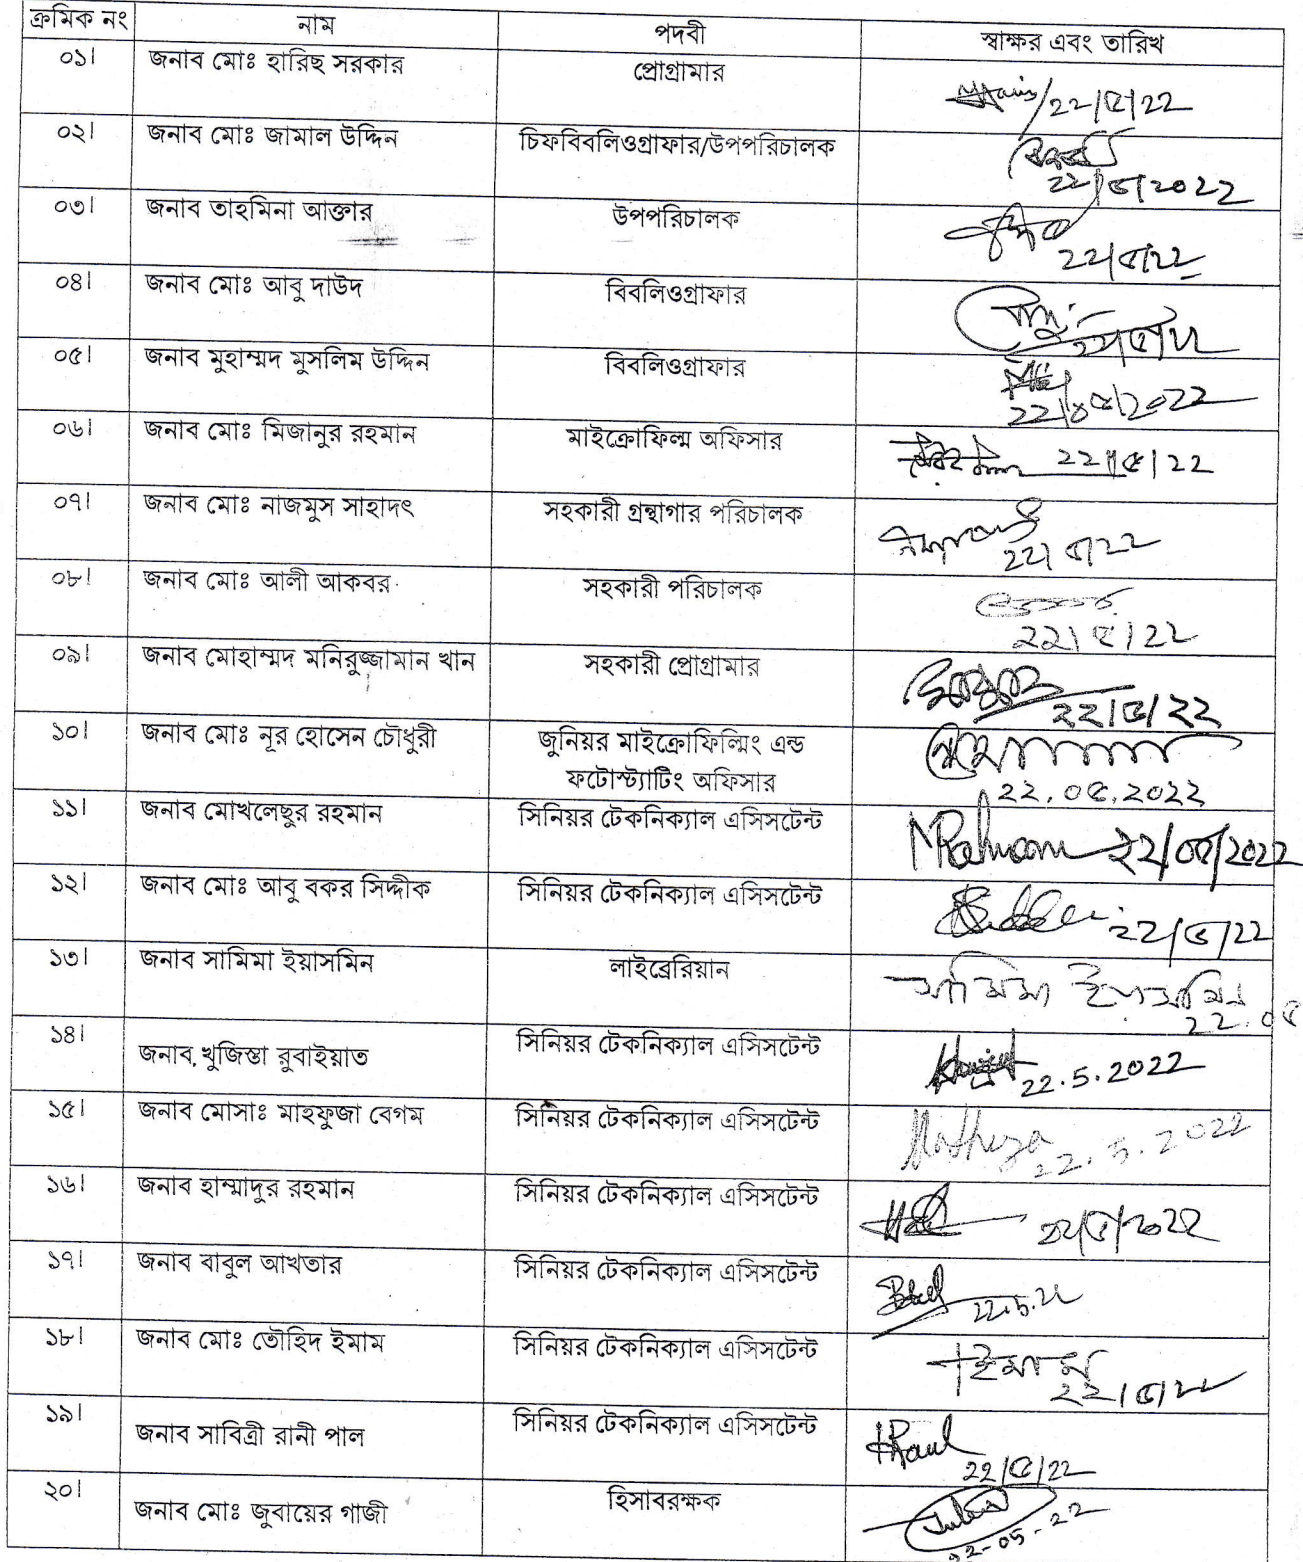 ক্রমিক নং নাম পদবী স্বাক্ষর এবং তারিখ
০১। জনাব মোঃ হারিছ সরকার প্রোগ্রামার
22/৫/22
০২। জনাব মোঃ জামাল উদ্দিন চিফবিবলিওগ্রাফার/উপপরিচালক
22/৫/2022
০৩। জনাব তাহমিনা আক্তার উপপরিচালক
22/৫/22
০৪। জনাব মোঃ আবু দাউদ বিবলিওগ্রাফার
০৫। জনাব মুহাম্মদ মুসলিম উদ্দিন বিবলিওগ্রাফার
22/০৫/2022
০৬। জনাব মোঃ মিজানুর রহমান মাইক্রোফিল্ম অফিসার 22/৫/22
০৭। জনাব মোঃ নাজমুস সাহাদৎ সহকারী গ্রন্থাগার পরিচালক
22/৫/22
০৮। জনাব মোঃ আলী আকবর সহকারী পরিচালক
২২/৫/২২
০৯। জনাব মোহাম্মদ মনিরুজ্জামান খান সহকারী প্রোগ্রামার
২২/৫/২২
১০। জনাব মোঃ নূর হোসেন চৌধুরী জুনিয়র মাইক্রোফিল্মিং এন্ড
ফটোস্ট্যাটিং অফিসার 22.০৫.2022
১১। জনাব মোখলেছুর রহমান সিনিয়র টেকনিক্যাল এসিসটেন্ট MRahman 22/০৫/2022
১২। জনাব মোঃ আবু বকর সিদ্দীক সিনিয়র টেকনিক্যাল এসিসটেন্ট 22/৫/22
১৩। জনাব সামিমা ইয়াসমিন লাইব্রেরিয়ান সামিমা ইয়াসমিন
22.০৫
১৪। জনাব খুজিস্তা রুবাইয়াত সিনিয়র টেকনিক্যাল এসিসটেন্ট 22.5.2022
১৫। জনাব মোসাঃ মাহফুজা বেগম সিনিয়র টেকনিক্যাল এসিসটেন্ট Mafhuza 22.5.2022
১৬। জনাব হাম্মাদুর রহমান সিনিয়র টেকনিক্যাল এসিসটেন্ট ২২/৫/২০২২
১৭। জনাব বাবুল আখতার সিনিয়র টেকনিক্যাল এসিসটেন্ট 22.5.22
১৮। জনাব মোঃ তৌহিদ ইমাম সিনিয়র টেকনিক্যাল এসিসটেন্ট ইমাম
22/৫/22
১৯। জনাব সাবিত্রী রানী পাল সিনিয়র টেকনিক্যাল এসিসটেন্ট
22/৫/22
২০। জনাব মোঃ জুবায়ের গাজী হিসাবরক্ষক
22-05-22